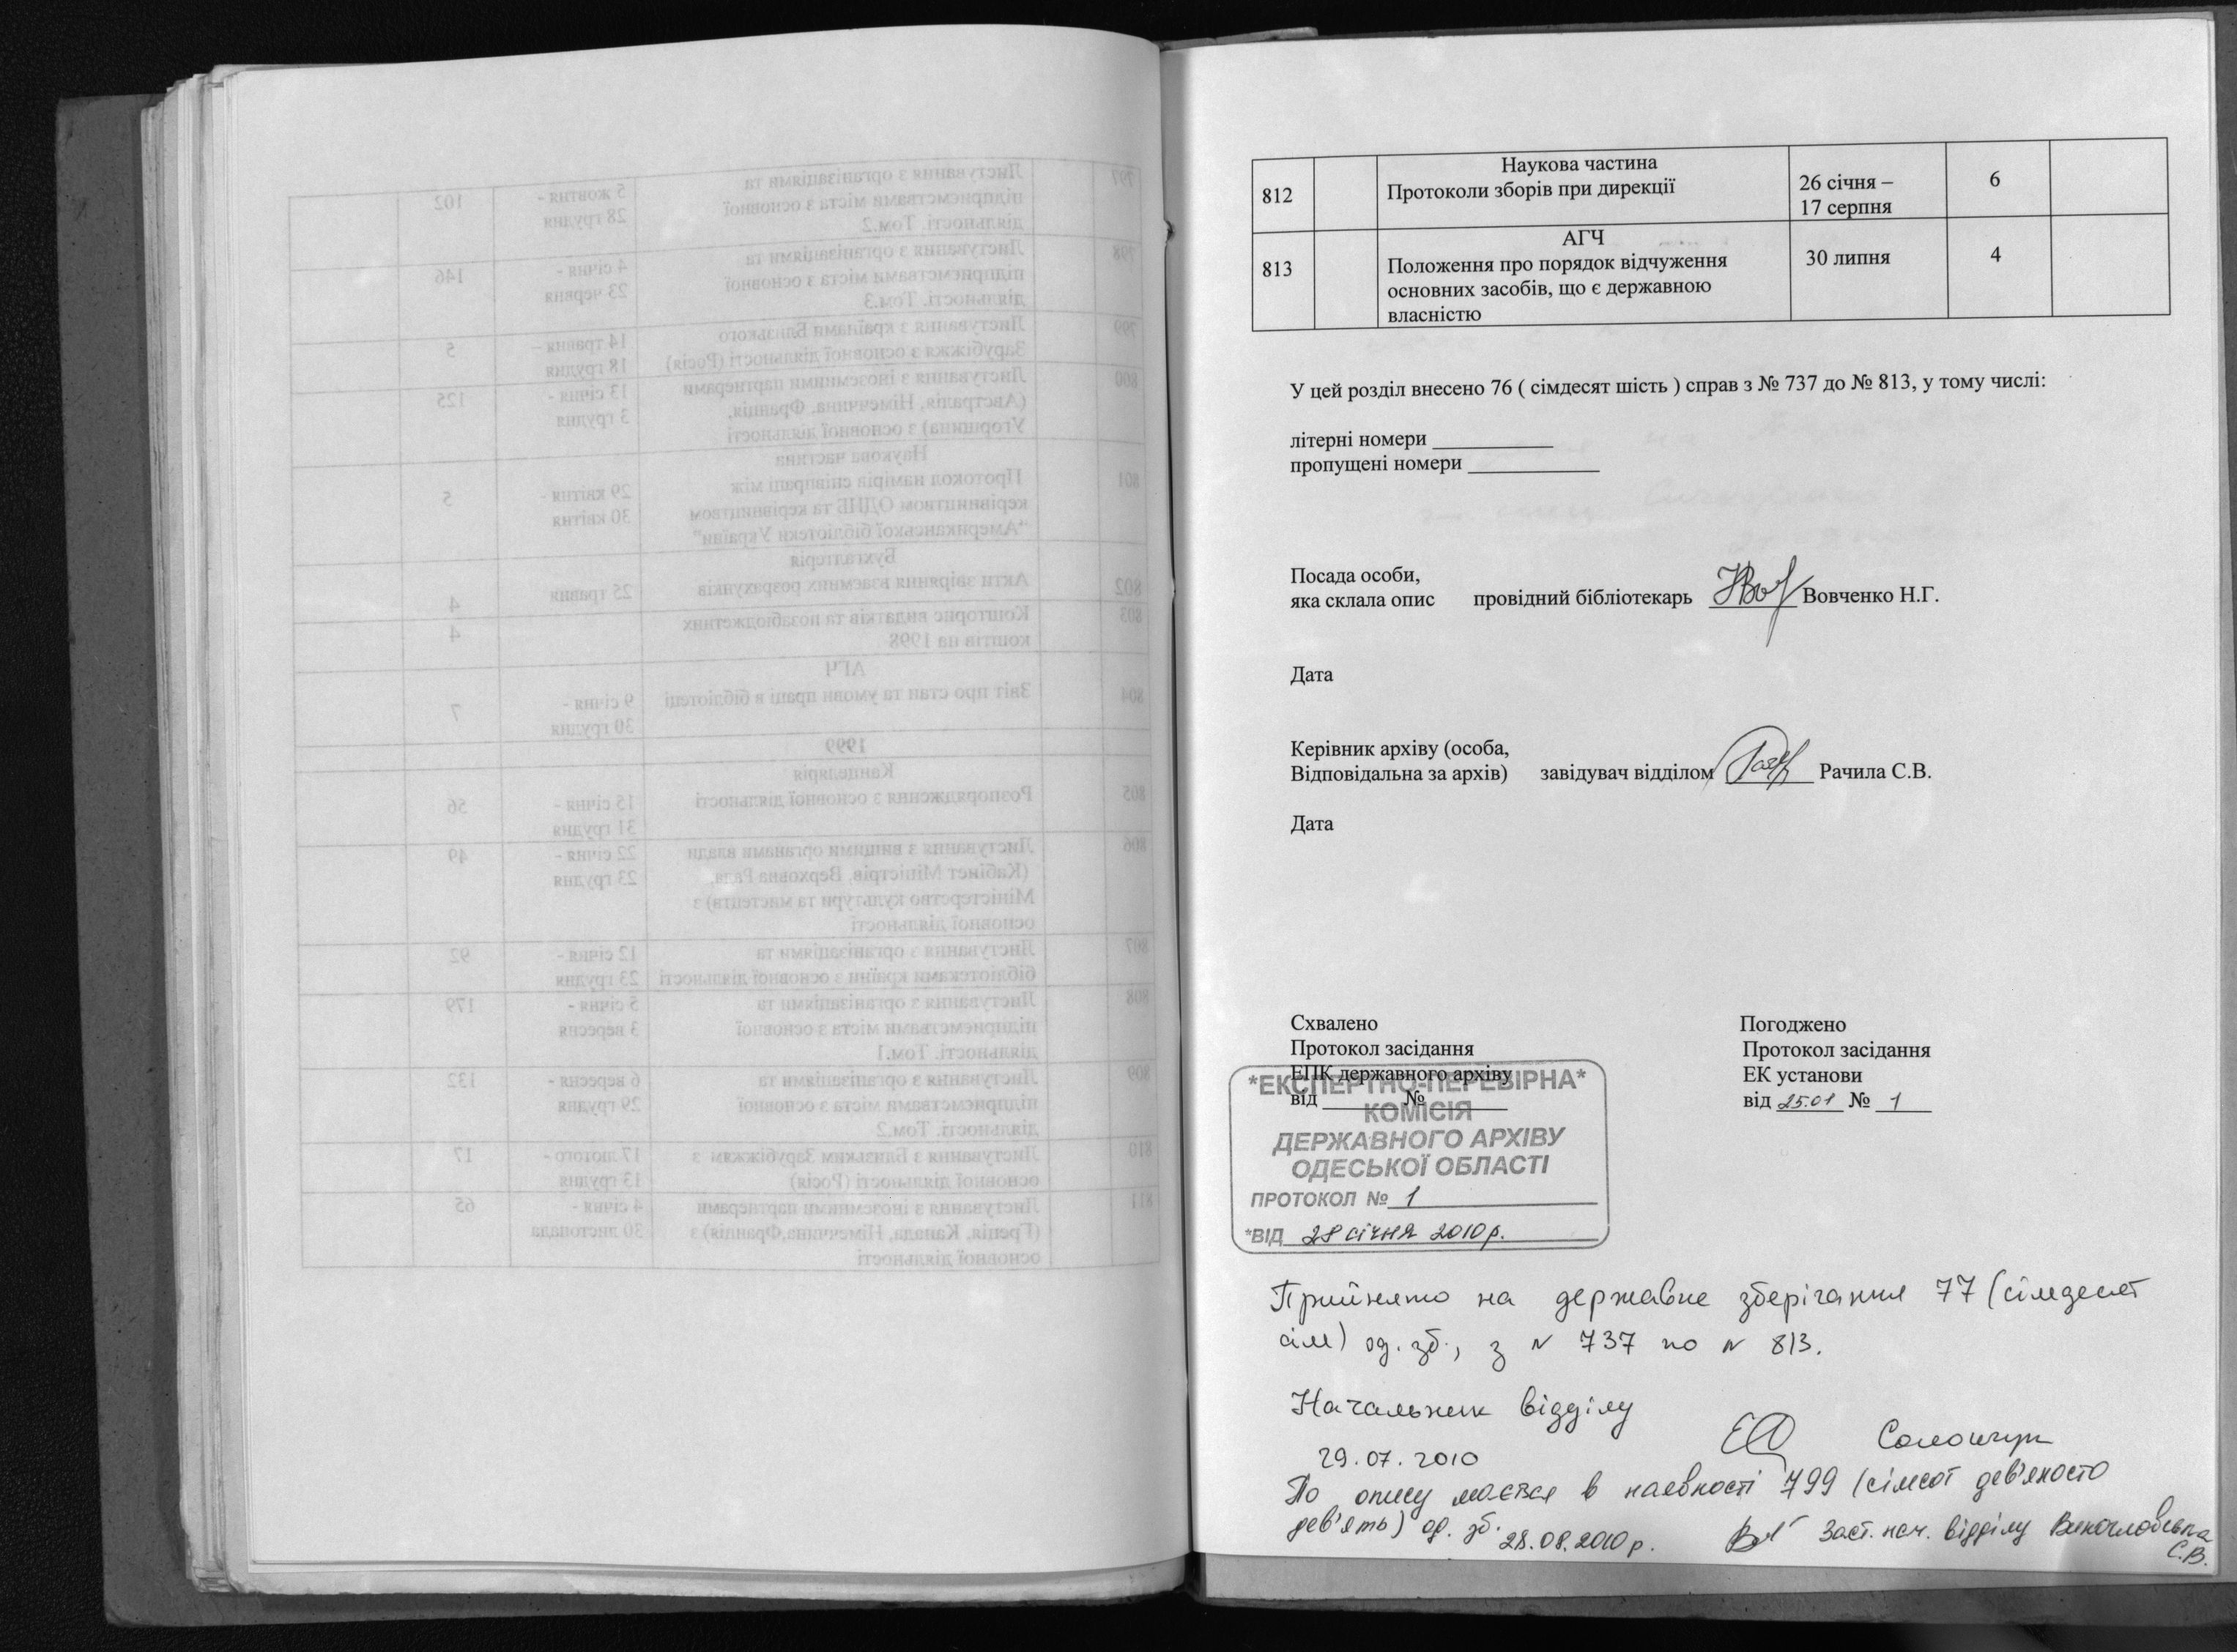 812
Наукова частина
Протоколи зборів при дирекції
26 січня –
17 серпня
6
813
АГЧ
Положення про порядок відчуження
основних засобів, що є державною
власністю
30 липня
4
У цей розділ внесено 76 ( сімдесят шість ) справ з № 737 до № 813, у тому числі:
літерні номери ___________
пропущені номери ____________
Посада особи,
яка склала опис провідний бібліотекарь Вовченко Н.Г.
Дата
Керівник архіву (особа,
Відповідальна за архів) завідувач відділом Рачила С.В.
Дата
Схвалено
Протокол засідання
ЕПК державного архіву
від _______ № _______
Погоджено
Протокол засідання
ЕК установи
від 25.01 № 1
*ЕКСПЕРТНО-ПЕРЕВІРНА*
КОМІСІЯ
ДЕРЖАВНОГО АРХІВУ
ОДЕСЬКОЇ ОБЛАСТІ
ПРОТОКОЛ № 1
*ВІД 28 січня 2010 р.
Прийнято на державне зберігання 77 (сімдесят
сім) од. зб., з № 737 по № 813.
Начальник відділу
29.07.2010
По опису мається в наявності 799 (сімсот дев'яносто
дев'ять) од. зб. 28.08.2010 р. Заст. нач. відділу
С.В.